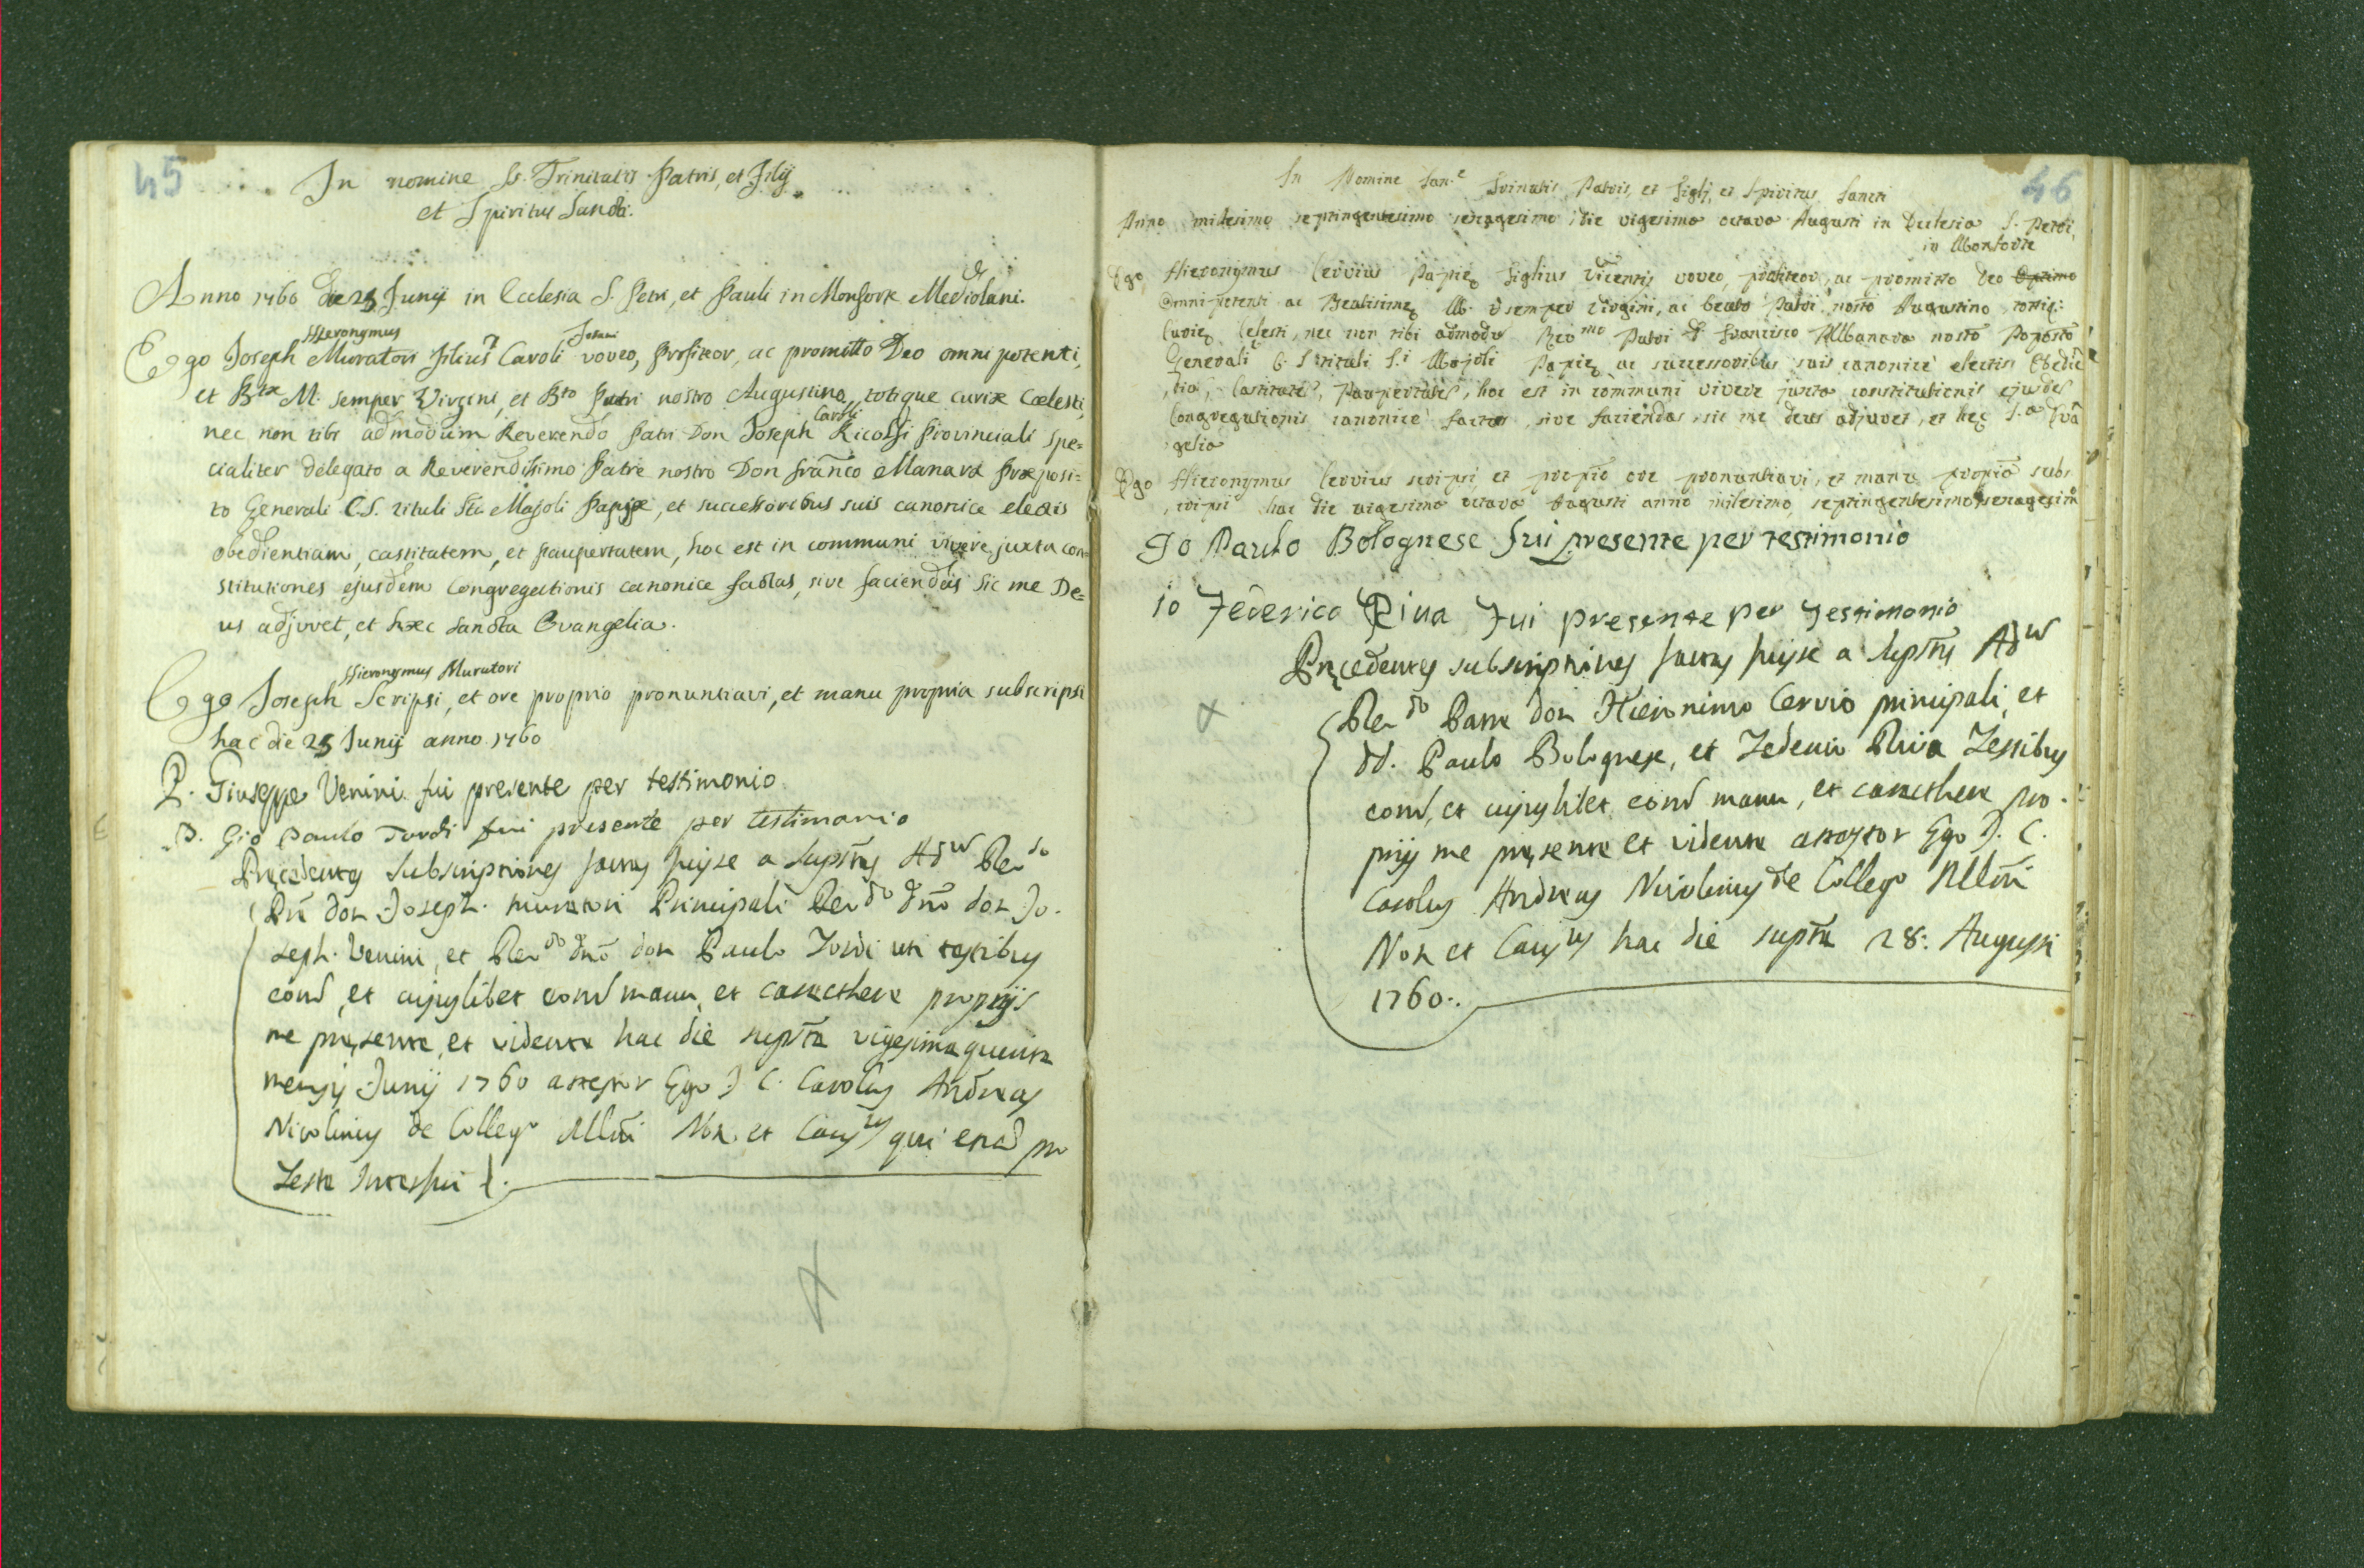 45
In nomine SS. Trinitatis Patris, et Filij
et Spiritus Sancti.
Anno 1760 die 25 Junij in Ecclesia S. Petri, et Pauli in Monforte Mediolani.
Hieronymus
Ego Joseph Muratori filius Caroli voveo, profiteor, ac promitto Deo omnipotenti,
et Btæ M. semper Virgini, et Bto Patri nostro Augustino, totique curiæ Cœlesti,
Caroli
nec non tibi admodum Reverendo Patri Don Joseph Ricolfi Provinciali spe=
cialiter delegato a Reverendissimo Patre nostro Don Franco Manara Præposi=
to Generali C.S. tituli Sti Majoli Papiæ, et successoribus suis canonice electis
obedientiam, castitatem, et paupertatem, hoc est in communi vivere juxta con=
stitutiones ejusdem Congregationis canonice factas, sive faciendas sic me De=
us adjuvet, et hæc sancta Evangelia.
Hieronymus Muratori
Ego Joseph Scripsi, et ore proprio pronuntiavi, et manu propria subscripsi
hac die 25 Junij anno 1760
P. Giuseppe Venini fui presente per testimonio
D. Gio Paulo Tordi fui presente per testimonio
Precedentes subscriptiones
Don Joseph Muratori Principali Revdo dno don Jo.
seph Venini, et Revdo dno don Paulo Tordi uti testibus
et cujuslibet manu, et caracthere proprijs
me presente, et vidente hac die supta vigesimaquinta
mensis Junij 1760 attestor Ego J. C. Carolus Andreas
Nicolinus de Collego Mlni Not. et Causcus qui
46
In Nomine San.e Trinitatis Patris, et Figlj, et Spiritus Sancti
Anno milesimo septingentesimo sexagesimo die vigesima octava Augusti in Ecclesia S. Petri,
in Monforte
Ego Hieronymus Cervius Papiez figlius Vicentis voveo, profiteor, ac promitto Deo Optimo
Omnipotenti ac Beatisime M. semper Virgini, ac beato Patri nostro Augustino totiq:
Curie Celesti, nec non tibi admodu Reomo Patri D Francisco Manara nosto Poposto
Generali C. S tituli S.i Majoli Papie ac successoribus suis canonice electis Obedie
,tia, Castitate, Paupertate, hoc est in communi vivere juxta constitutionis ejusde
Congregationis canonice factas, sive faciendas, sic me deus adjuvet, et hec S.a Eva
gelia
Ego Hieronymus Cervius scripsi et propio ore pronuntiavi, et manu propia subs
,cripsi hac die vigesima octava Augusti anno milesimo septingentesimo sexagesim
Io Paulo Bolognese fui presente per testimonio
io Federico Riva fui presente per testimonio
Precedentes subscriptiones
Revdo Patre don Hieronimo Cervio principali, et
dd. Paulo Bolognese, et Federico Riva Testibus
et cujuslibet manu, et caracthere pro.
prijs me presente et vidente attestor Ego J. C.
Carolus Andreas Nicolinus de Collego Mlni
Not et Causcus hac die supta 28. Augusti
1760.